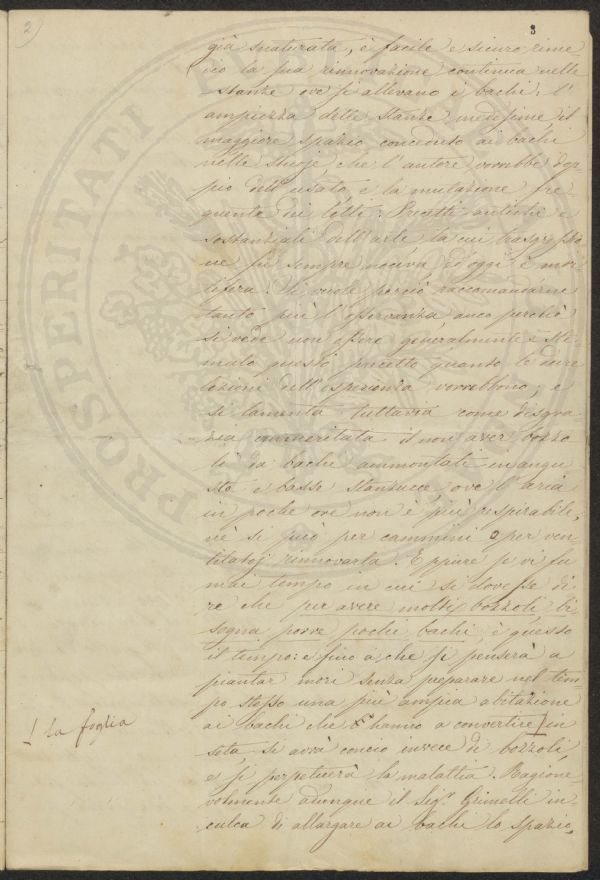 2)
3
già snaturata, è facile e sicuro rime
dio la sua rinnovazione continua nelle
stanze ove si allevano i bachi: l'
ampiezza delle stanze medesime il
maggiore spazio conceduto ai bachi
nelle stuoje che l'autore vorrebbe dop-
pio dell'usato, e la mutazione fre
quente dei letti. Precetti antichi e
sostanziali dell'arte la cui trasgressio
ne fu sempre nociva, ed oggi è mor
tifera. Si vuole perciò raccomandarne
tanto più l'osservanza anco perchè
si vede non essere generalmente sti-
mato questo precetto quanto le dure
lezioni dell'esperienza vorrebbono; e
si lamenta tuttavia come disgra
zia immeritata il non aver bozzo
li da bachi ammontati in angu
ste e basse stanzucce ove l'aria
in poche ore non è più respirabile,
nè si può per cammini o per ven
tilatoj rinnovarla. Eppure se vi fu
mai tempo in cui si dovesse di
re che per avere molti bozzoli, bi
sogna porre pochi bachi, è questo
il tempo: e fino a che si penserà a
piantar mori senza preparare nel tem
po stesso una più ampia abitazione
ai bachi che hanno a convertire in
| La foglia
seta, si avrà concio invece di bozzoli
e si perpetuerà la malattia. Ragione
volmente adunque il Sig.r Grimelli in
culca di allargare ai bachi lo spazio,
PROSPERITATI PUBLICAE